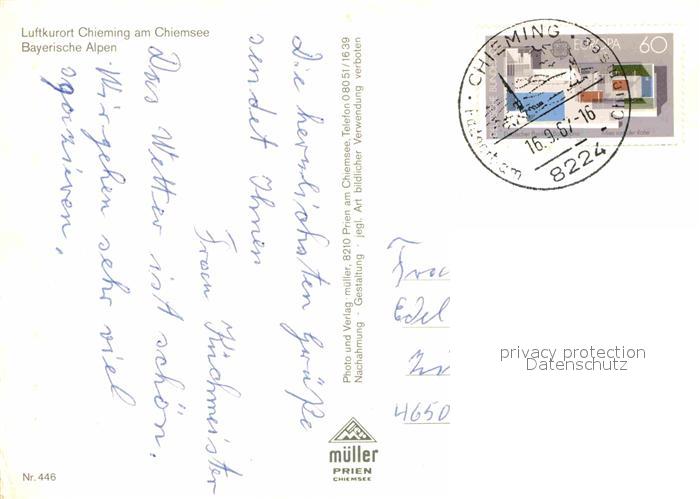 Luftkurort Chieming am Chiemsee
Bayerische Alpen
Die herzlichsten Grüße
sendet Ihnen
Frau Küchmeister
Das Wetter ist schön.
Wir gehen sehr viel
spazieren.
Photo und Verlag: müller, 8210 Prien am Chiemsee, Telefon 08051/1639
Nachahmung · Gestaltung · jegl. Art bildlicher Verwendung verboten
müller
PRIEN
CHIEMSEE
Nr. 446
EUROPA 60
CHIEMING
8224
Frau
Edel
4650
privacy protection
Datenschutz